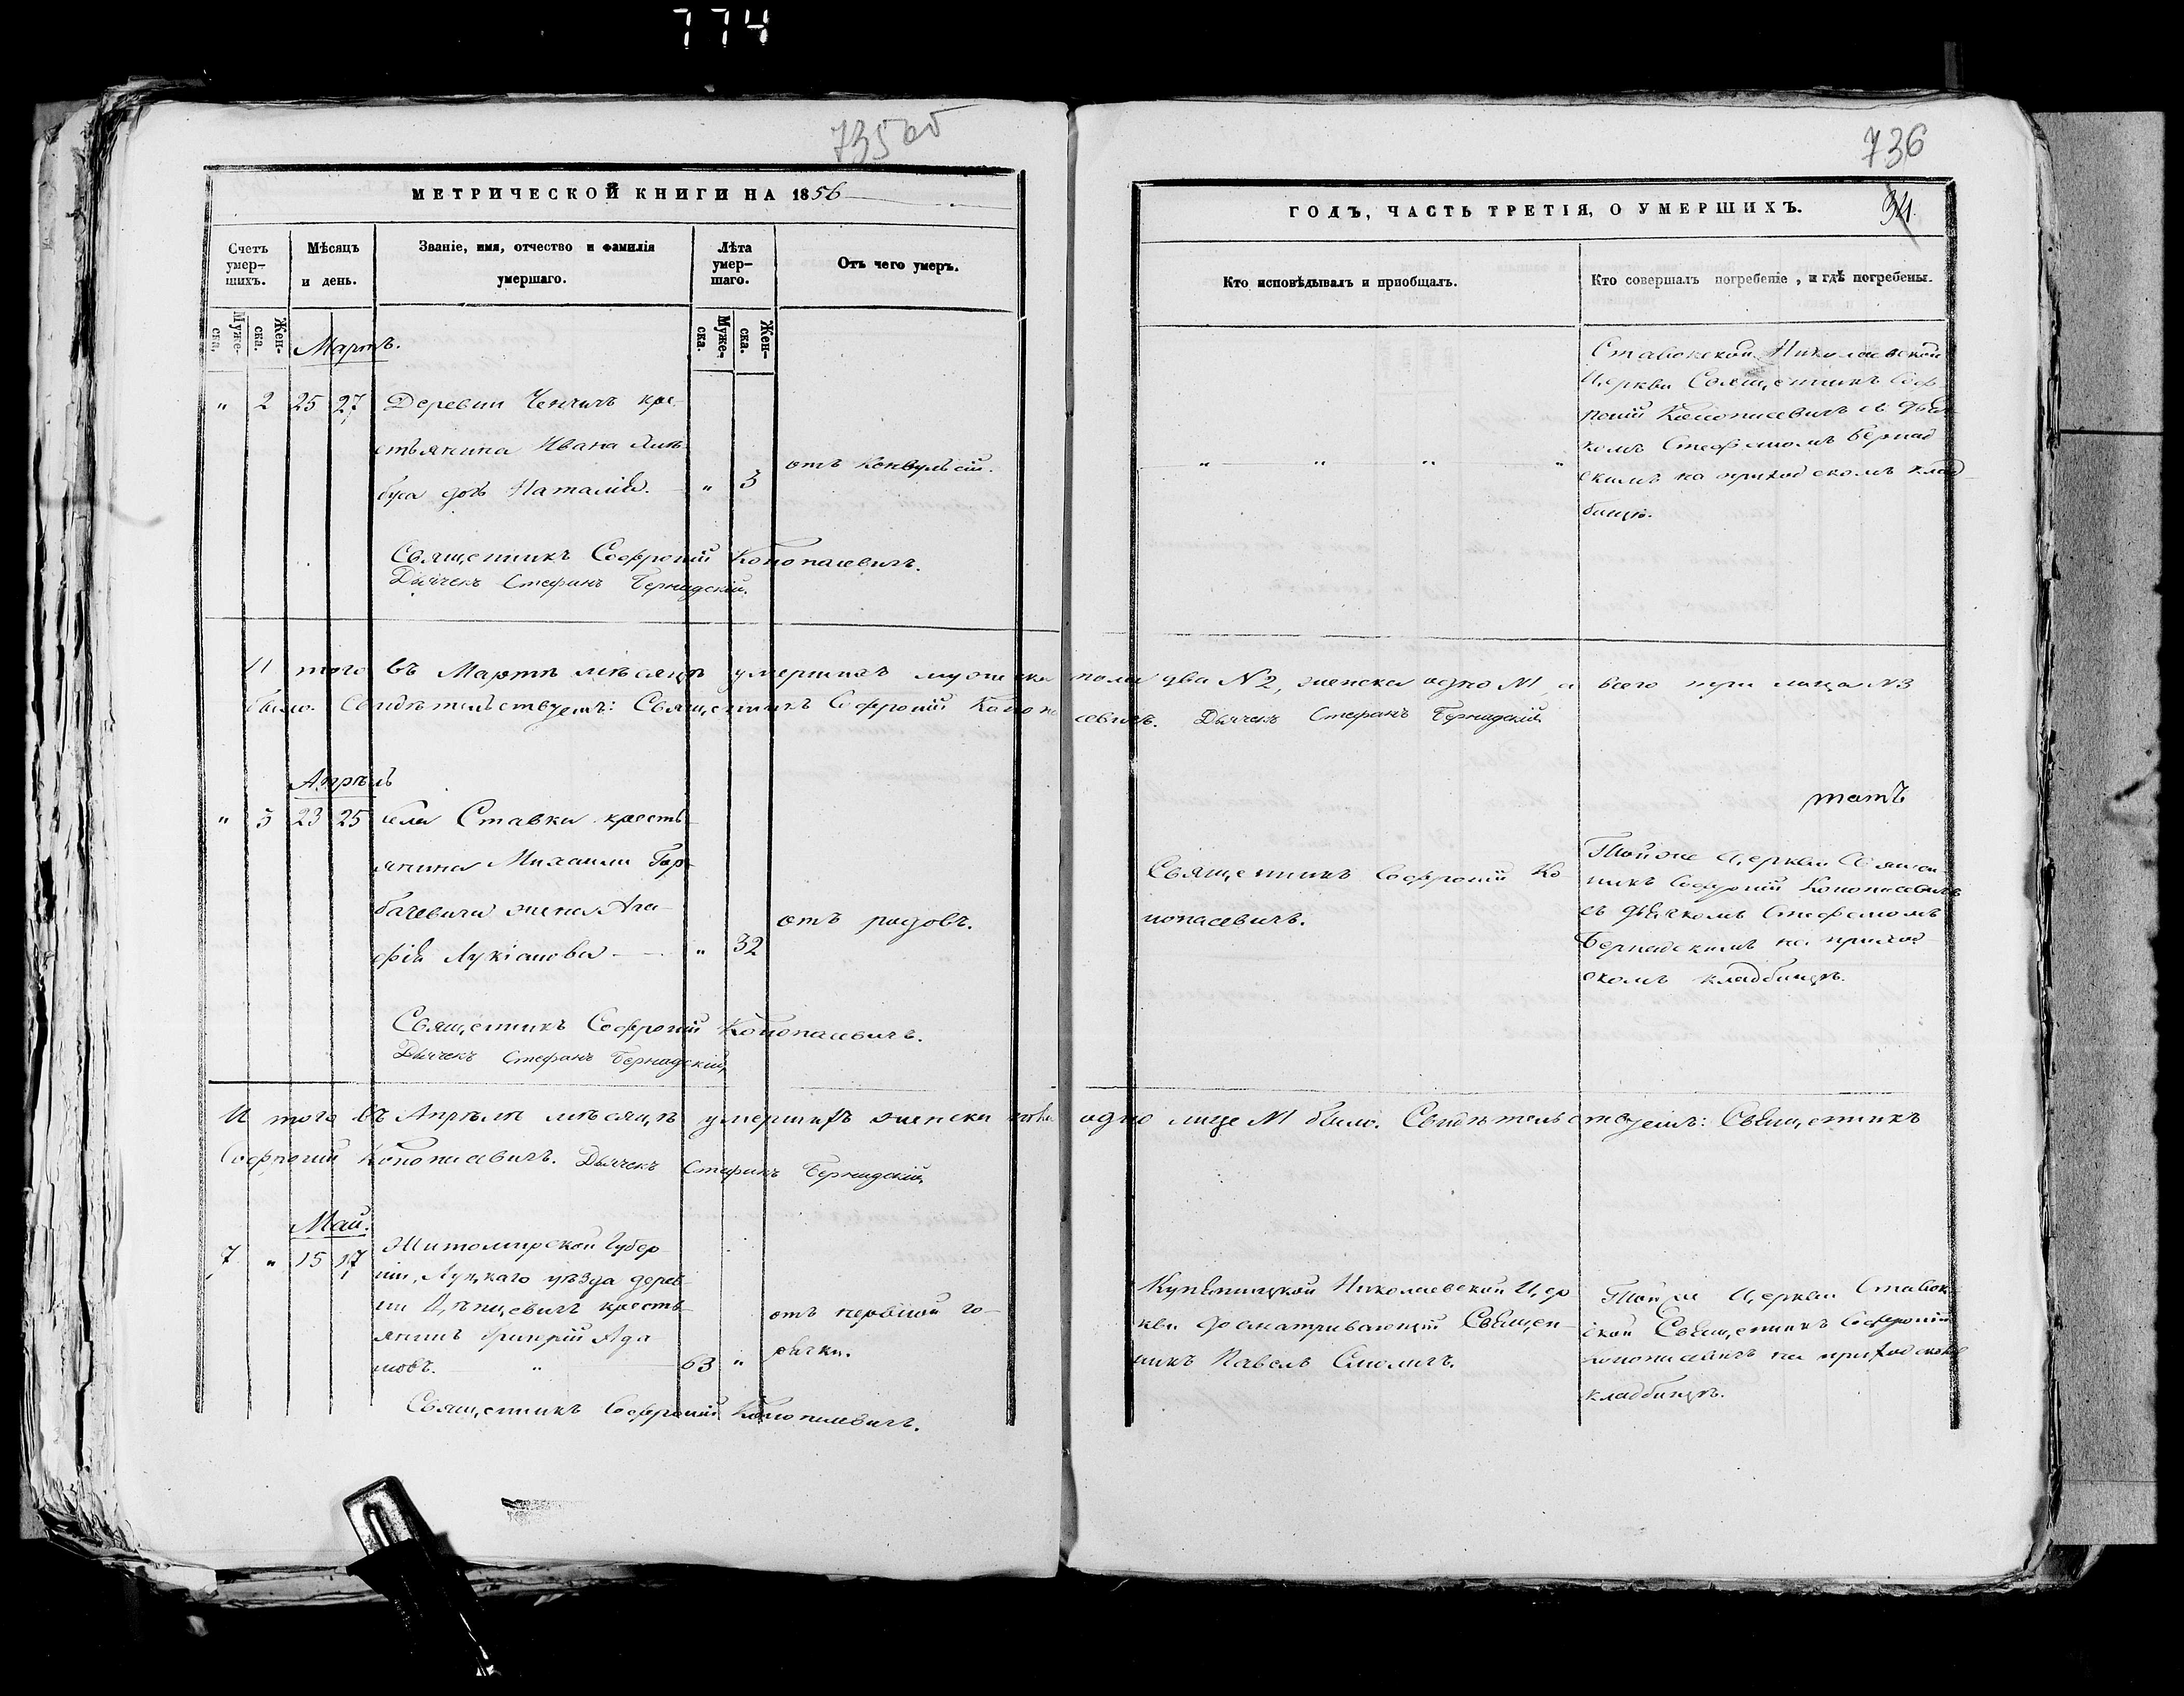 774
735об
МЕТРИЧЕСКОЙ КНИГИ НА 1856
Счетъ умер-шихъ.
Мѣсяцъ и день.
Званіе, имя, отчество и фамилія умершаго.
Лѣта умер-шаго.
Отъ чего умеръ.
Муже-ска.
Жен-ска.
Муже-ска.
Жен-ска.
Мартъ.
" 2 25 27 Деревни Ченчичъ кре
стьянина Ивана
дочь Наталія. " 3 отъ конвульсій.
Священникъ Софроній Конопасевичъ.
Дьячекъ Стефанъ Бернадскій.
И того въ Мартѣ мѣсяцѣ умершихъ мужеска пола два N 2, женска одно N 1, а всего три лица N 3
было. Свидѣтельствуемъ: Священникъ Софроній Конопасевичъ. Дьячекъ Стефанъ Бернадскій.
Апрѣль
" 3 23 25 села Ставки кресть
янина Михаила Гор-
бачевича жена Ага-
фія Лукіанова " 32 отъ родовъ.
Священникъ Софроній Конопасевичъ.
Дьячекъ Стефанъ Бернадскій.
И того въ Апрѣлѣ мѣсяцѣ умершихъ женска пола одно лице N 1 было. Свидѣтельствуемъ: Священникъ
Софроній Конопасевичъ. Дьячекъ Стефанъ Бернадскій.
Май.
7 " 15 17 Житомирской Губер-
ніи, Луцкаго уѣзда дерев-
ни кресть-
янинъ Григорій Ада
мовъ. " 63 " отъ нервной го-
рячки.
Священникъ Софроній Конопасевичъ.
736
34
ГОДЪ, ЧАСТЬ ТРЕТІЯ, О УМЕРШИХЪ.
Кто исповѣдывалъ и пріобщалъ.
Кто совершалъ погребеніе, и гдѣ погребены.
" " " "
Ставокской Николаевской
Церкви Священникъ Соф
роній Конопасевичъ съ дьяч-
комъ Стефаномъ Бернад
скимъ на приходскомъ клад
бищѣ.
Священникъ Софроній Ко
нопасевичъ.
Тойже Церкви Священ
никъ Софроній Конопасевичъ
съ дьячкомъ Стефаномъ
Бернадскимъ на приход
скомъ кладбищѣ.
Николаевской Цер
кви досматривающій Священ-
никъ Павелъ Смоличъ.
Тойже Церкви Ставок
ской Священникъ Софроній
Конопасевичъ на приходскомъ
кладбищѣ.